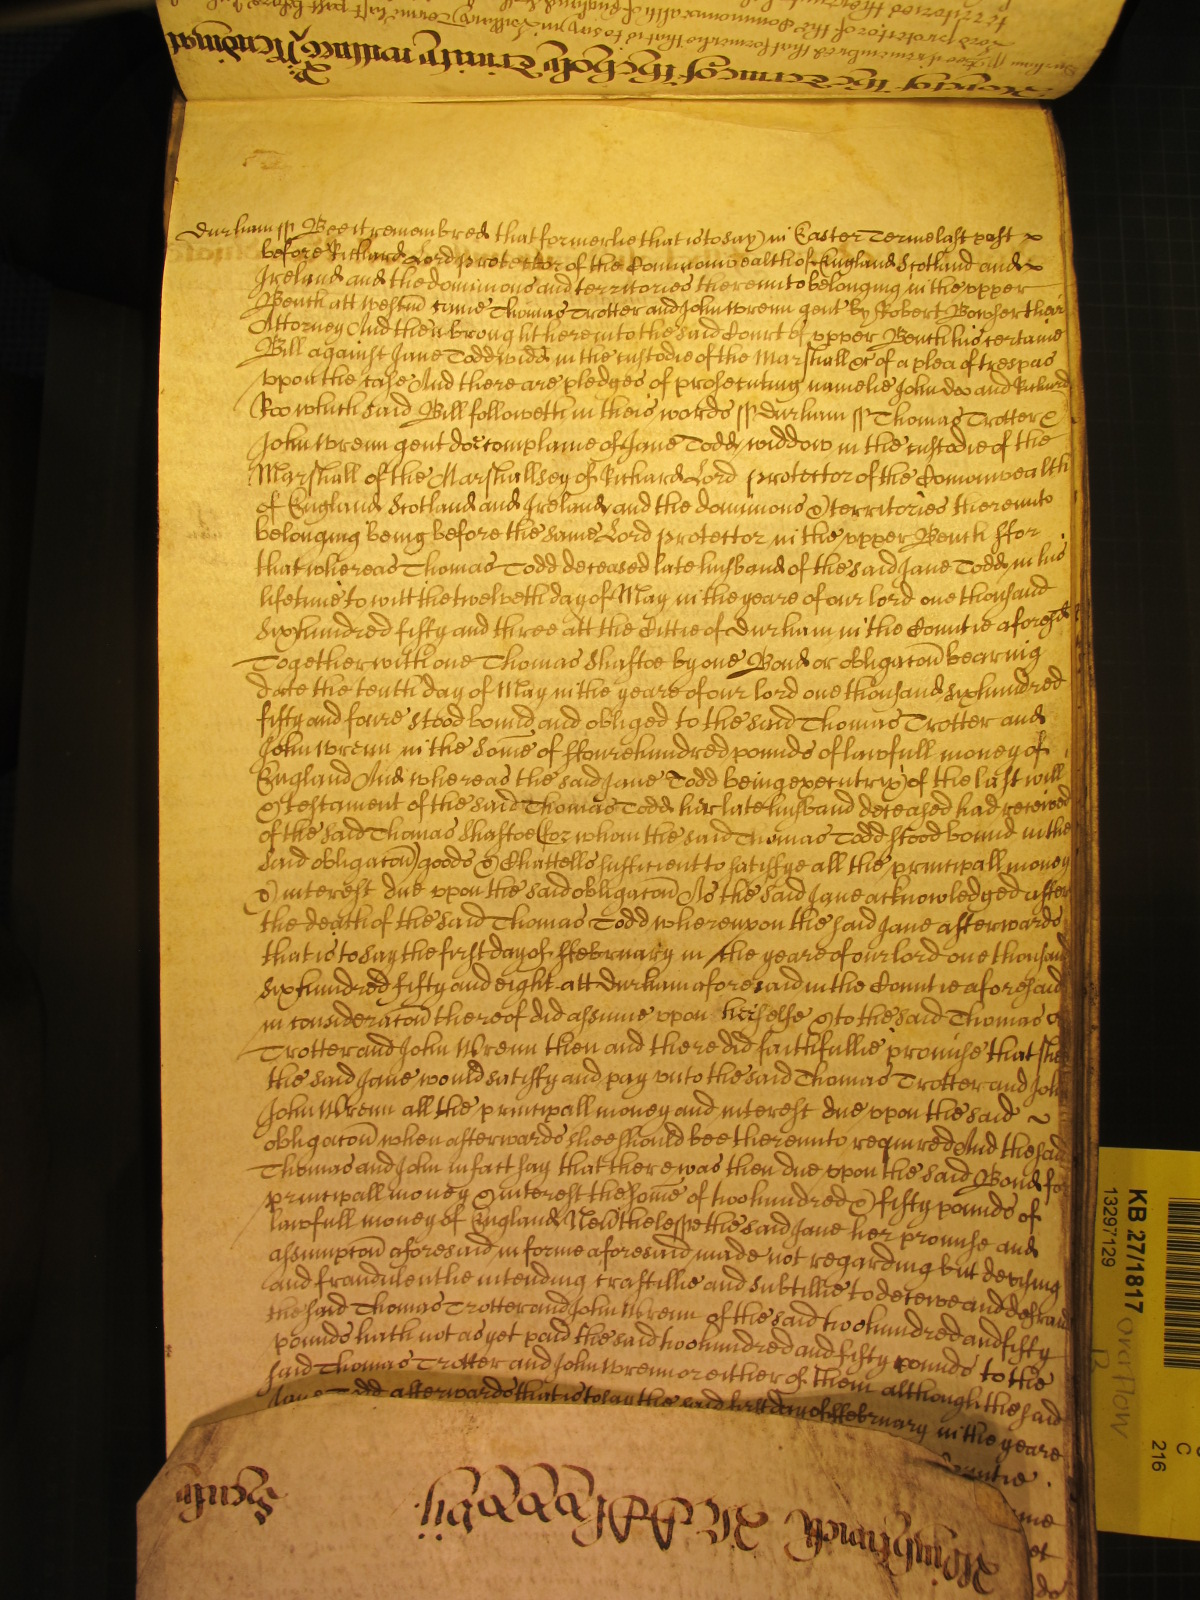 Durham ss Bee it remembred that formerlie that is to say in Easter Terme last past
before Richard Lord Protector of the Commonwealth of England Scotland and
Ireland and the dominions and territories thereunto belonging in the upper
Bench att Westm̄ came Thomas Trotter and John Wrenn gent by Robert Bowser their
Attorney And then brought here into the said Court of upper Bench his certaine
Bill against Jane Todd widd in the custodie of the Marshall &c of a plea of trespas
upon the case And there are pledges of prosecuting namelie John doo and Richard
Roo which said Bill followeth in theis words ss durham ss Thomas Trotter &
John Wrenn gent doe complaine of Jane Todd widdow in the custodie of the
Marshall of the Marshallsey of Richard Lord protector of the Comonwealth
of England Scotland and Ireland and the dominions & territories thereunto
belonging being before the same Lord protector in the upper Bench ffor
that whereas Thomas Todd deceased late husband of the said Jane Todd in his
lifetime to witt the twelveth day of May in the yeare of our lord one thousand
Six hundred fifty and three att the Cittie of Durham in the Countie aforesd
Together with one Thomas Shaftoe by one Bond or obligacōn bearing
date the tenth day of May in the yeare of our lord one thousand Six hundred
fifty and foure stood bound and obliged to the said Thomas Trotter and
John Wrenn in the Some of ffoure hundred pounds of lawfull money of
England And whereas the said Jane Todd being executrix of the last will
& testament of the said Thomas Todd her late husband deceased had received
of the said Thomas Shaftoe (for whom the said Thomas Todd stood bound in the
said obligacōn) goods & Chattells sufficient to satisfye all the principall money
& interest due upon the said obligacōn As the said Jane acknowledged after
the death of the said Thomas Todd whereupon the said Jane afterwards
that is to say the first day of ffebruary in the yeare of our lord one thousand
Six hundred fifty and eight att Durham aforesaid in the Countie aforesaid
in consideracōn thereof did assume upon her selfe & to the said Thomas
Trotter and John Wrenn then and there did faithfullie promise that shee
the said Jane would satisfy and pay unto the said Thomas Trotter and John
John Wrenn all the principall money and interest due upon the said
obligacōn when afterwards shee should bee thereunto required And the said
Thomas and John in fact say that there was then due upon the said Bond for
principall money & interest the some of two hundred & fifty pounds of
lawfull money of England Nev̄thelesse the said Jane her promise and
assumpcōn aforesaid in forme aforesaid made not regarding but devising
and fraudulentlie intending craftillie and subtillie to deceive and defraud
the said Thomas Trotter and John Wrenn of the said two hundred and fifty
pounds hath not as yet paid the said two hundred and fifty pounds to the
said Thomas Trotter and John Wrenn or either of them although the said
Jane Todd afterwards that is to say the said first day of ffebruary in the yeare
Countie
KB 27/1817 overflow
13297129
C
216